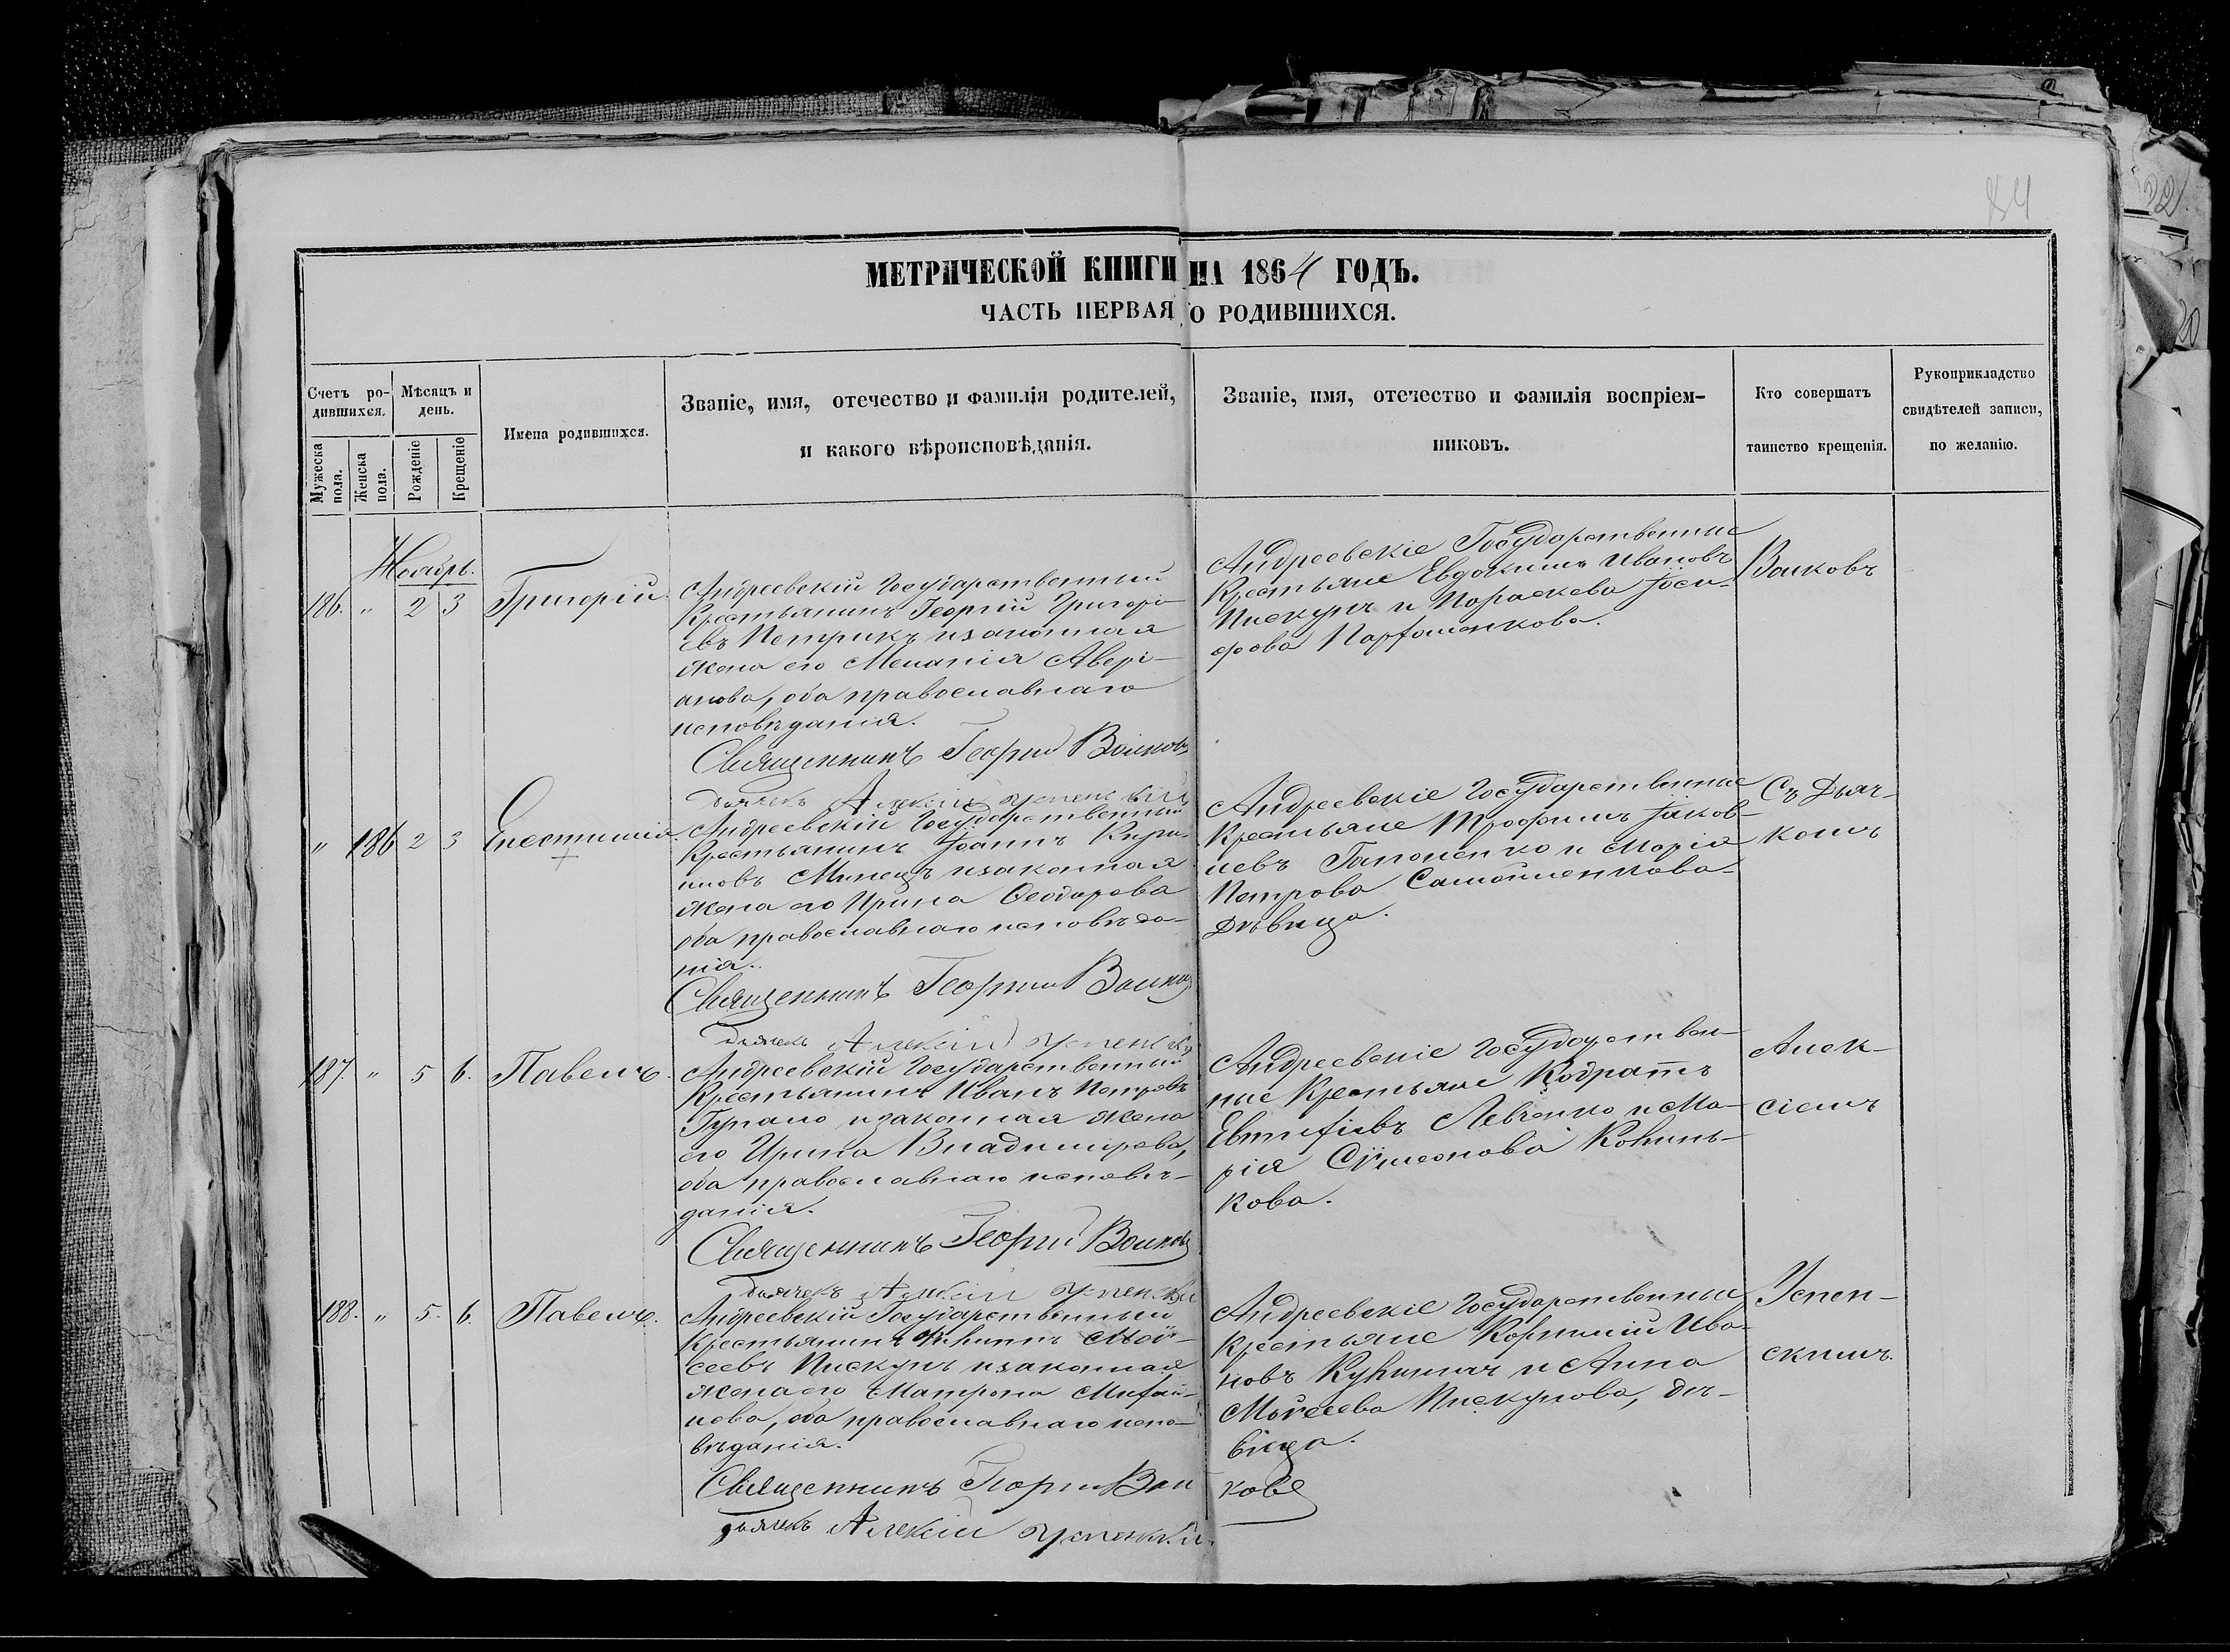 84
МЕТРИЧЕСКОЙ КНИГИ НА 1864 ГОДЪ.
ЧАСТЬ ПЕРВАЯ О РОДИВШИХСЯ.
Счетъ ро-
дившихся.
Мужеска пола.
Женска пола.
Мѣсяцъ и
день.
Рожденіе
Крещеніе
Имена родившихся.
Званіе, имя, отечество и фамилія родителей,
и какого вѣроисповѣданія.
Званіе, имя, отечество и фамилія воспріем-
никовъ.
Кто совершатъ
таинство крещенія.
Рукоприкладство
свидѣтелей записи,
по желанію.
Ноябрь.
186. " 2 3 Григорій
Андреевскій Государственный
Крестьянинъ Георгій Григорі-
евъ Петрикъ и законная
жена его Меланія Авері-
анова, оба православнаго
исповѣданія.
Священникъ Георгій Волковъ
Дьячекъ Алексій Успенскій
Андреевскіе Государственные
Крестьяне Евдокимъ Ивановъ
Пискунъ и Параскева Іоси-
фова Парфоменкова.
Волковъ
" 186 2 3
Андреевскій Государственный
Крестьянинъ Іоаннъ Кири-
ловъ Минецъ и законная
жена его Ирина Ѳеодорова
оба православнаго исповѣда-
нія.
Священникъ Георгій Волковъ
Дьячекъ Алексій Успенскій
Андреевскіе Государственные
Крестьяне Трофимъ Іаков-
левъ Гапоненко и Марія
Петрова Самойленкова
Дѣвица.
Съ Дьяч-
комъ
187. " 5 6. Павелъ.
Андреевскій Государственный
Крестьянинъ Иванъ Петровъ
и законная жена
его Ирина Владимирова,
оба православнаго исповѣ-
данія.
Священникъ Георгій Волковъ
Дьячекъ Алексій Успенскій
Андреевскіе Государствен-
ные Крестьяне Кодратъ
Левченко и Ма-
рія Сѵмеонова
кова.
Алек-
сіемъ
188. " 5. 6. Павелъ.
Андреевскій Государственный
Крестьянинъ Мої-
сеевъ Пискунъ и законная
жена его Матрона Михаи-
лова, оба православнаго испо-
вѣданія.
Священникъ Георгій Вол
ковъ
Дьячекъ Алексій Успенскій
Андреевскіе Государственные
Крестьяне Корнилій Ива-
новъ и Анна
Моѵсеева Пискунова, дѣ-
вица.
Успен-
скимъ.